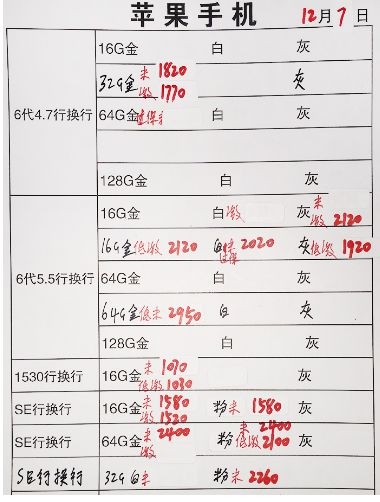 苹果手机 12月7日
16G金 白 灰
32G金 未 1820 激 1770 灰
6代4.7行换行 64G金 白 灰
128G金 白 灰
16G金 白激 灰 未 激 2120
16G金 低激 2120 白未 2020 灰低激 1920
6代5.5行换行 64G金 白 灰
64G金低未 2950 白 灰
128G金 白 灰
1530行换行 16G金 未 1070 低激 1030 灰
SE行换行 16G金 未 1580 激 1520 粉未 1580 灰
SE行换行 64G金 未 2400 激 粉 未 2400 低激 2100 灰
SE行换行 32G白未 粉未 2260